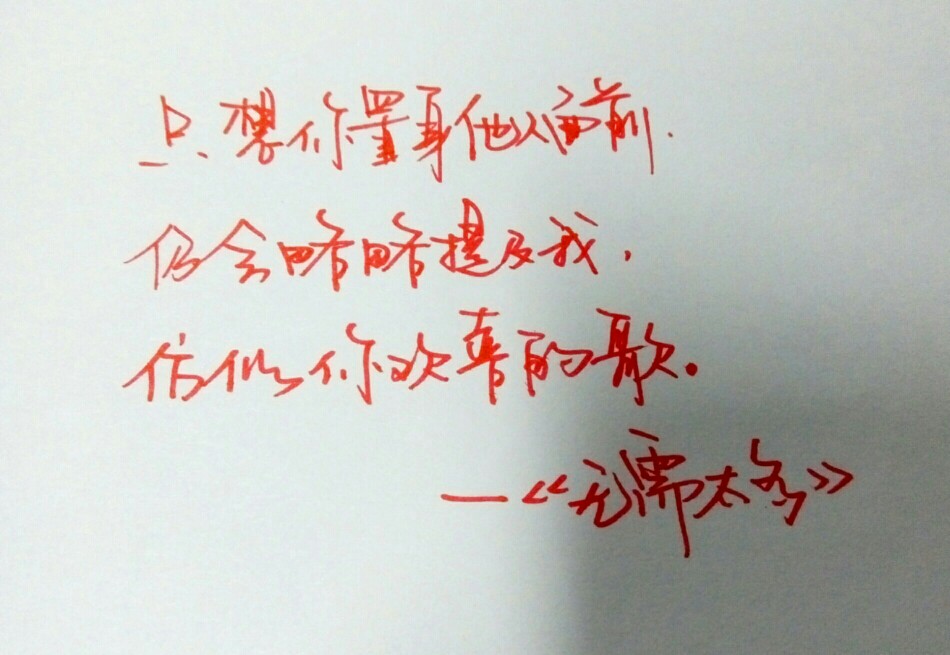 只想你置身他人面前.
仍会略略提及我,
仿似你欢喜的歌。
—《无需太多》